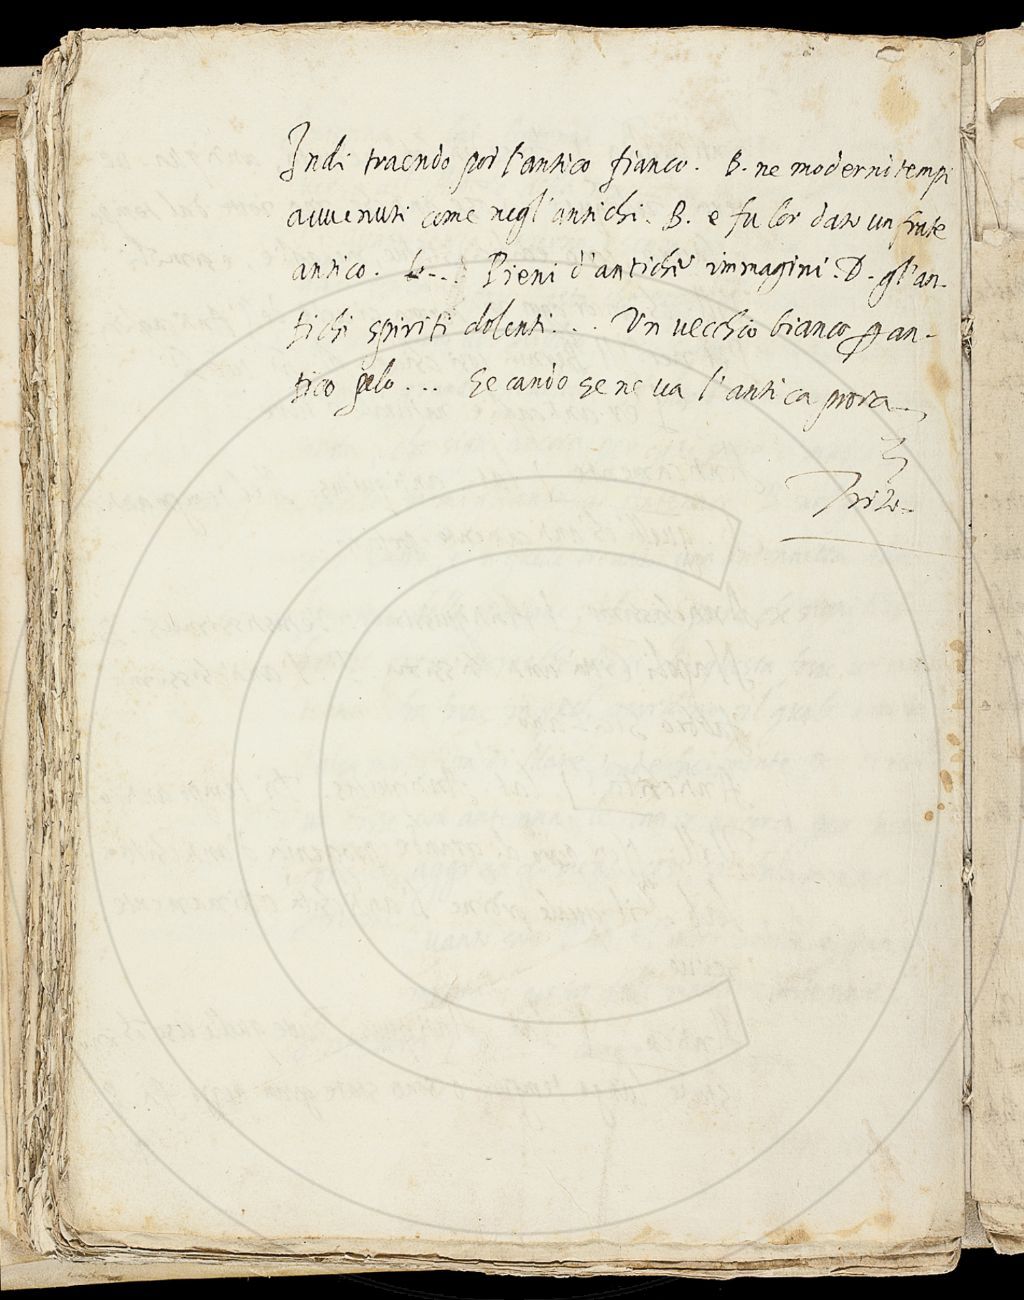 Indi traendo poi l'antico fianco. B. ne moderni tempi
auuenuti come negl'antichi. B. e fu lor dato un frate
antico. Pieni d'antiche immagini. D. gl'an-
tichi spiriti dolenti... Un uecchio bianco p an-
tico pelo... Secando se ne ua l'antica prora